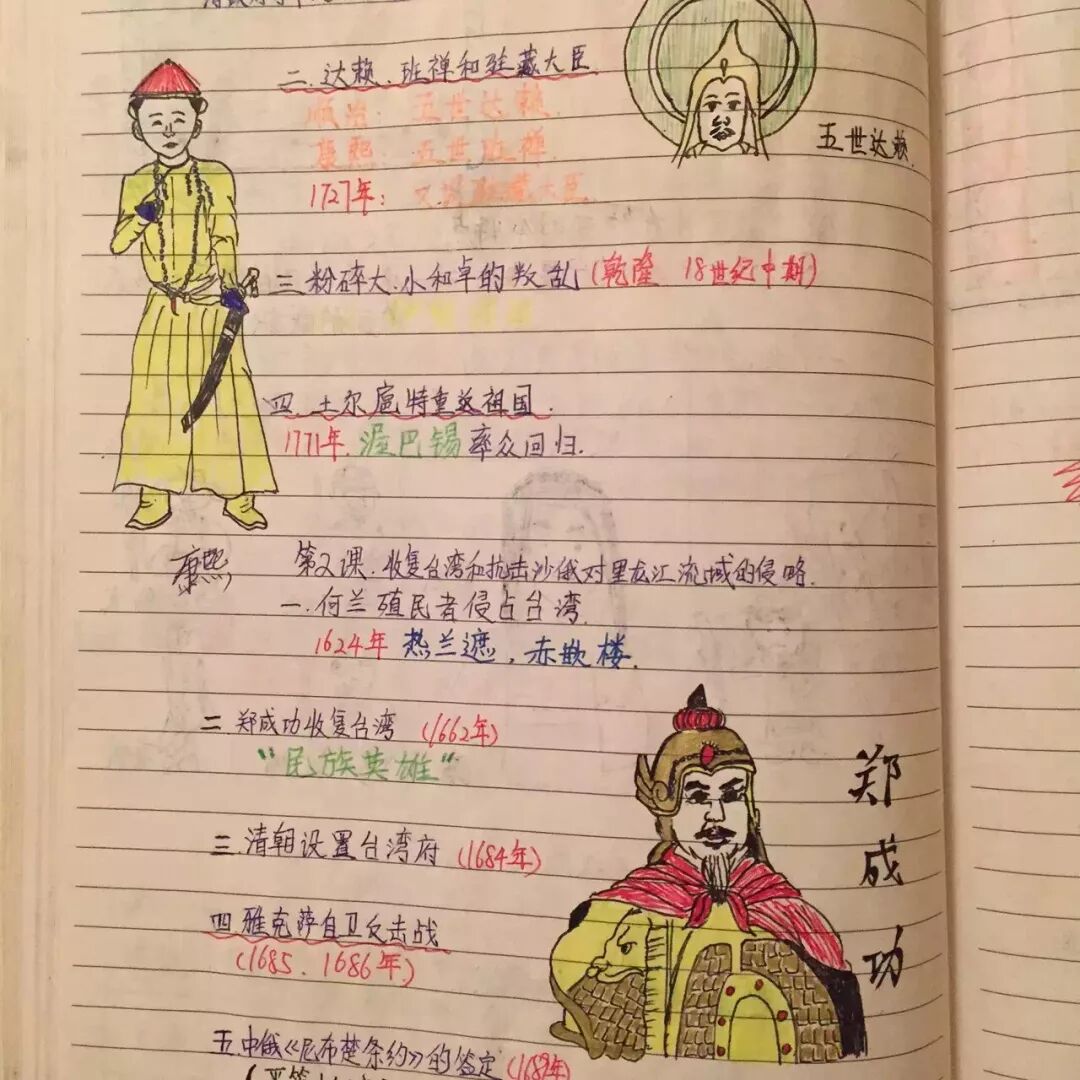 二.达赖、班禅和驻藏大臣
顺治：五世达赖.
康熙：五世班禅
1727年：又设驻藏大臣.
五世达赖.
三粉碎大.小和卓的叛乱(乾隆 18世纪中期)
四.土尔扈特重返祖国.
1771年.渥巴锡率众回归.
康熙
第2课.收复台湾和抗击沙俄对黑龙江流域的侵略.
一.何兰殖民者侵占台湾.
1624年 热兰遮,赤嵌楼.
二郑成功收复台湾 (1662年)
"民族英雄"
三.清朝设置台湾府 (1684年)
四.雅克萨自卫反击战
(1685.1686年)
五.中俄《尼布楚条约》的签定(1689年)
郑成功